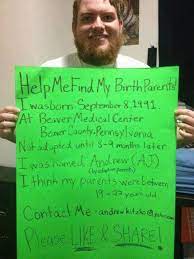 Help Me Find My Birth Parents!
I was born September 8, 1991.
At Beaver Medical Center
Beaver County, Pennsylvania
Not adopted until 8-9 months later
I was named Andrew (AJ)
I think my parents were between
19-22 years old
Contact Me - @yahoo.com
Please LIKE & SHARE!